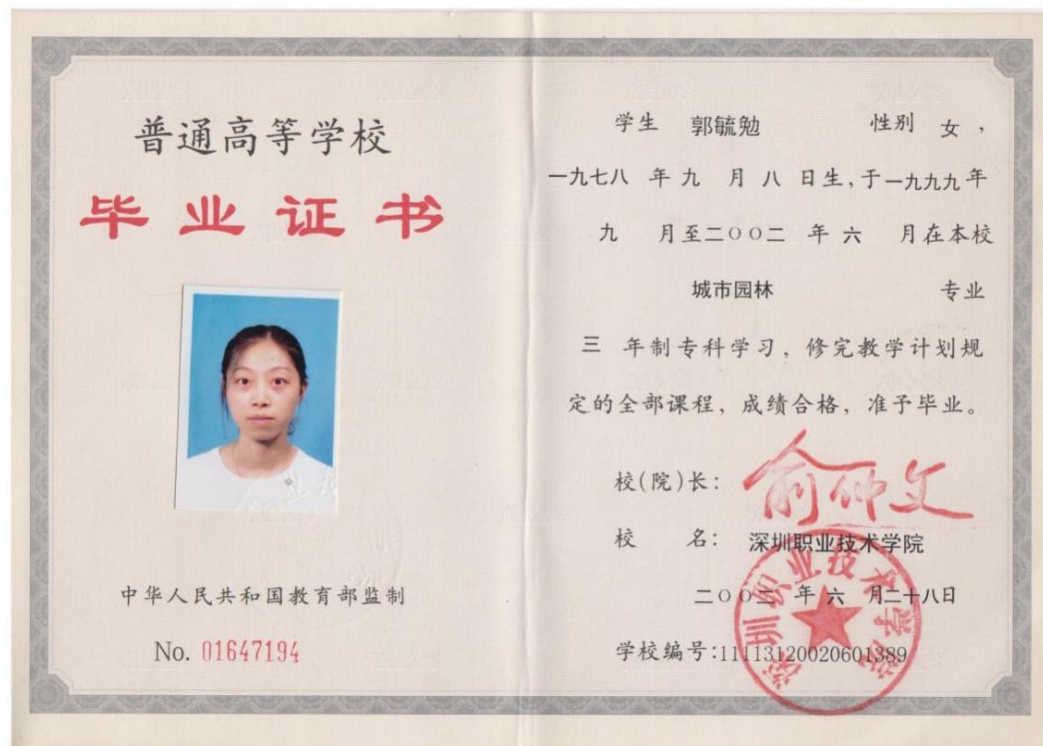 普通高等学校
毕业证书
中华人民共和国教育部监制
No. 01647194
学生 郭毓勉 性别 女，
一九七八 年 九 月 八 日生，于一九九九年
九 月至二〇〇二 年 六 月在本校
城市园林 专业
三 年制专科学习，修完教学计划规
定的全部课程，成绩合格，准予毕业。
校(院)长： 俞仲文
校 名： 深圳职业技术学院
二〇〇二 年 六 月二十八日
学校编号：11113120020601389
深圳职业技术学院